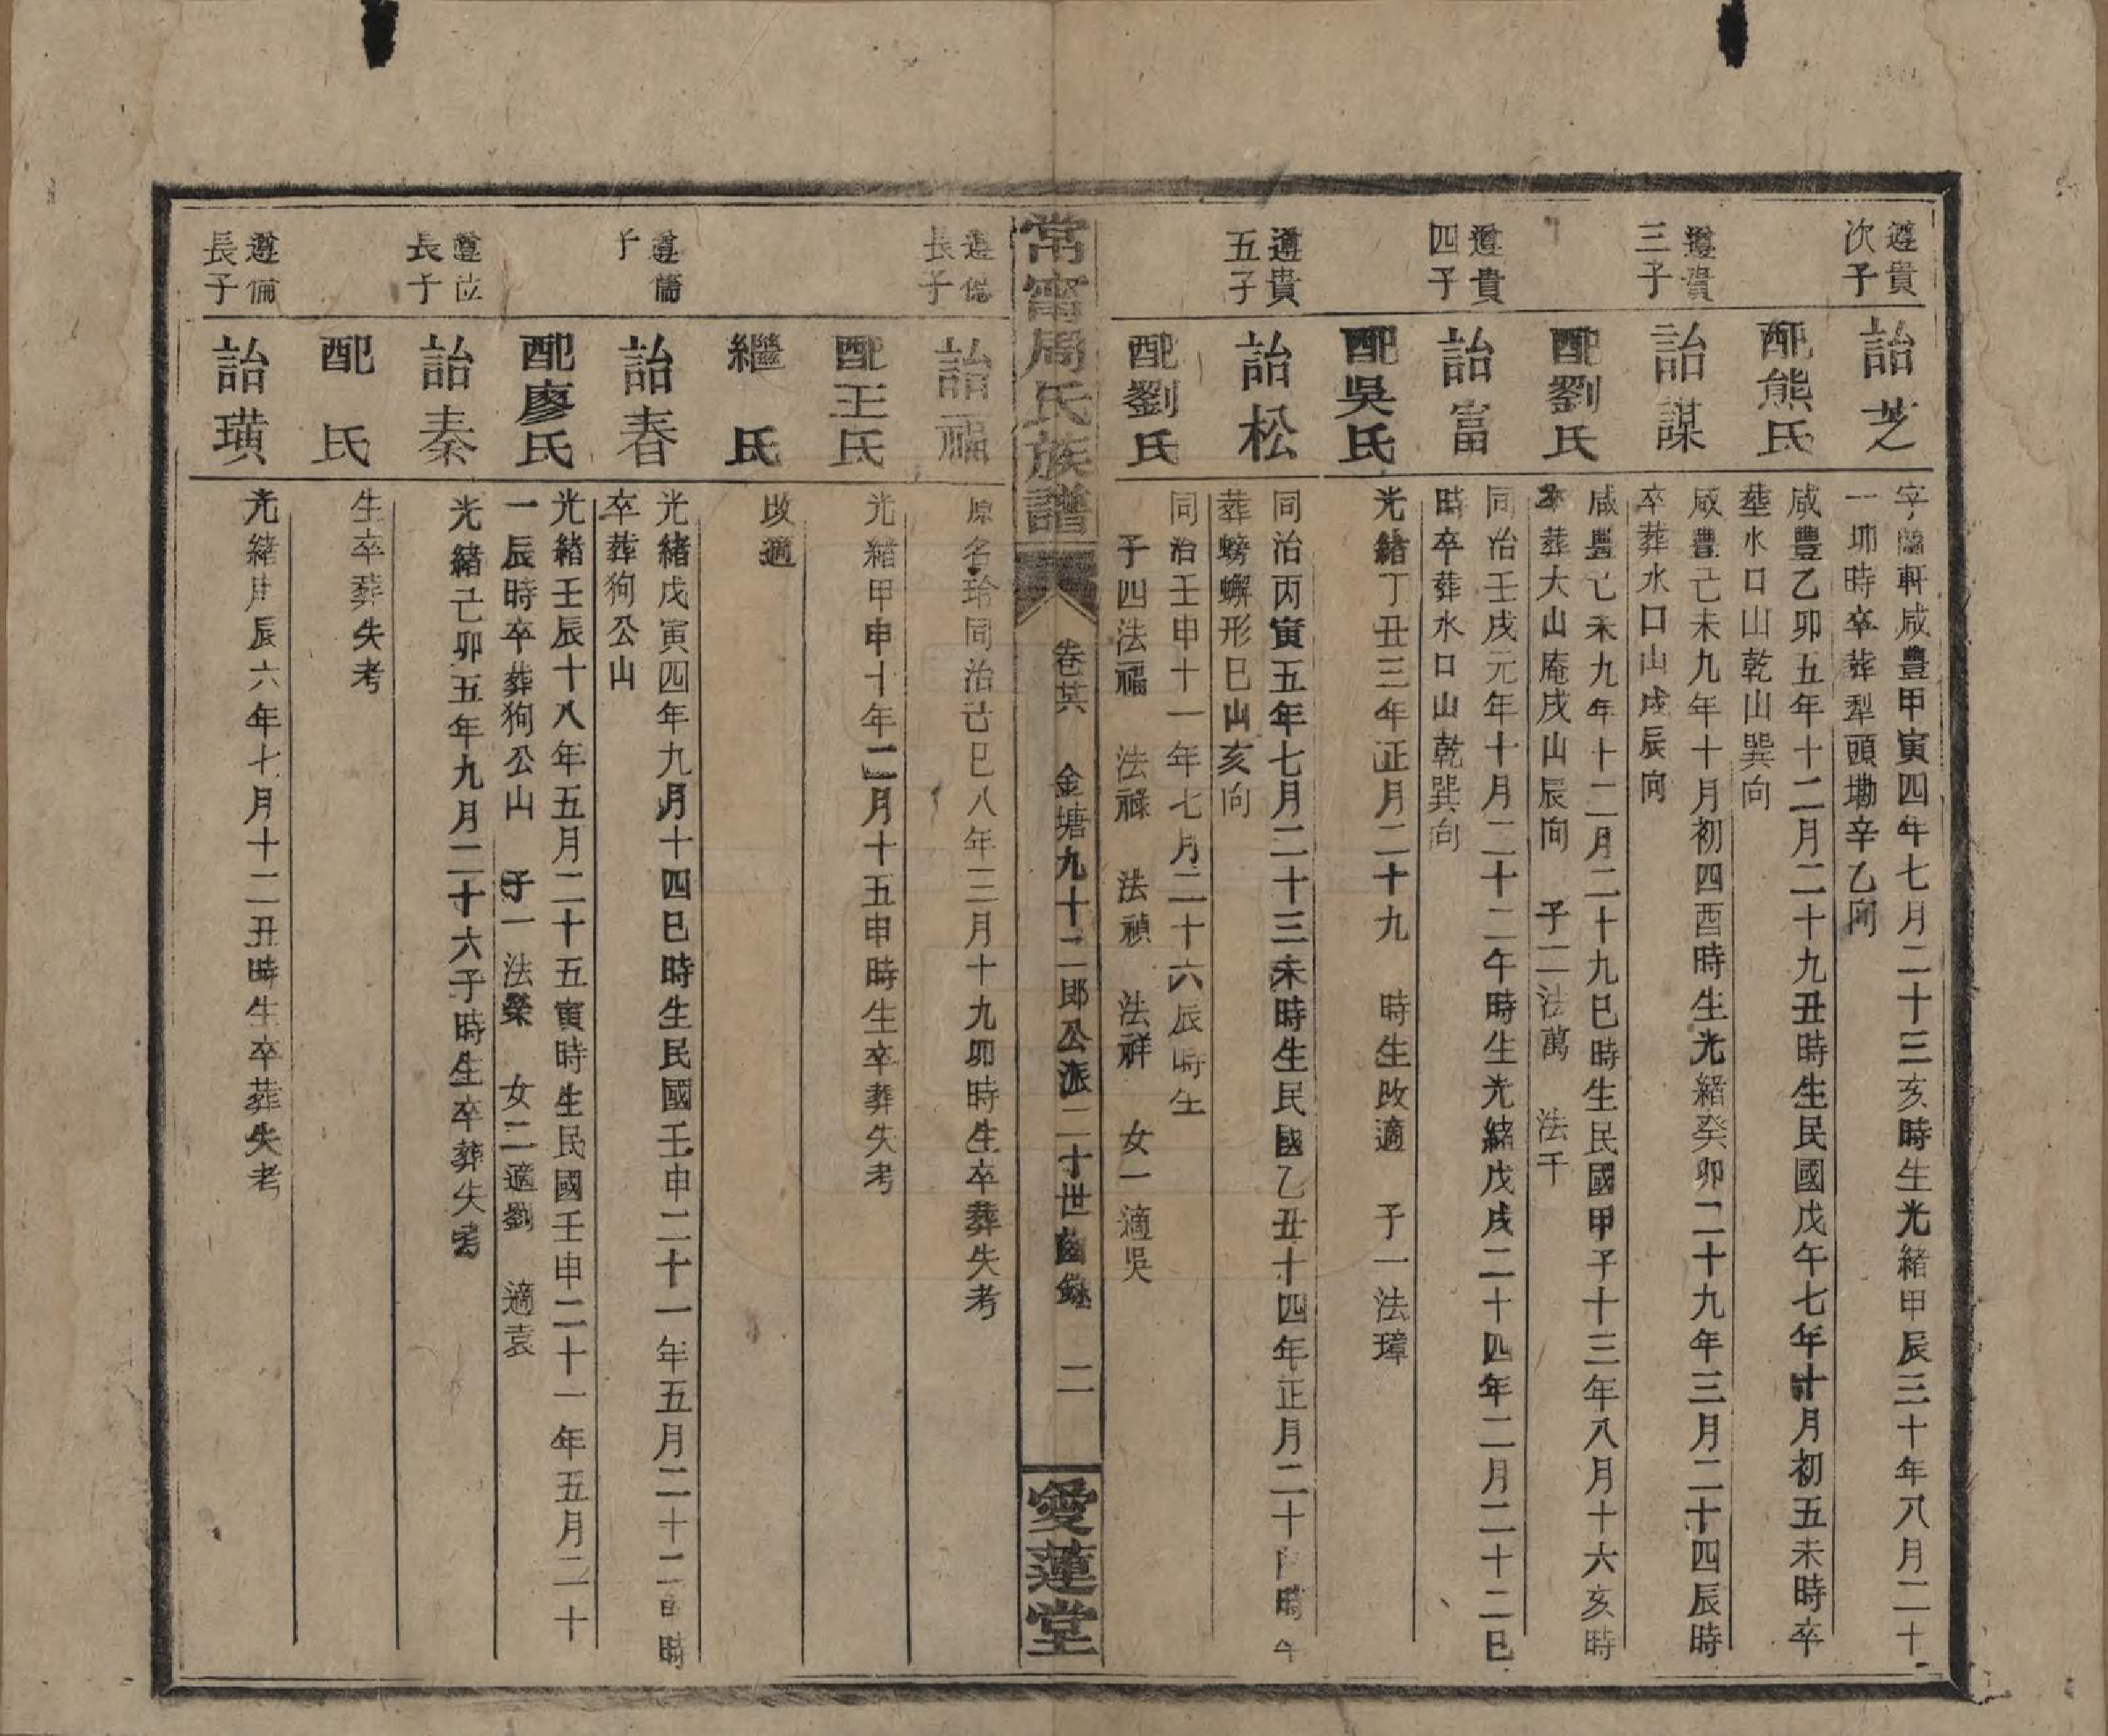 遵貴
次子
詒芝
字蘭軒咸豐甲寅四年七月二十三亥時生光緒甲辰三十年八月二十
一卯時卒葬犁頭塝辛乙向
配熊氏
咸豐乙卯五年十二月二十九丑時生民國戊午七年十月初五未時卒
塟水口山乾山巽向
遵貴
三子
詒謀
咸豐己未九年十月初四酉時生光緒癸卯二十九年三月二十四辰時
卒葬水口山戌辰向
配劉氏
咸豐己未九年十二月二十九巳時生民國甲子十三年八月十六亥時
卒葬大山庵戌山辰向 子二法萬 法千
遵貴
四子
詒富
同治壬戌元年十月二十二午時生光緒戊戌二十四年二月二十二巳
時卒葬水口山乾巽向
配吳氏
光緒丁丑三年正月二十九 時生改適 子一法璋
遵貴
五子
詒松
同治丙寅五年七月二十三未時生民國乙丑十四年正月二十 時卒
葬螃蠏形巳山亥向
配劉氏
同治壬申十一年七月二十六辰時生
子四法福 法祿 法禎 法祥 女一適吳
常甯周氏族譜
卷廿六 金塘九十二郎公派二十世齒錄 二
愛蓮堂
遵
長子
詒福
原名琀同治己巳八年三月十九卯時生卒葬失考
配王氏
光緒甲申十年二月十五申時生卒葬失考
繼 氏
改適
遵
子
詒春
光緒戊寅四年九月十四巳時生民國壬申二十一年五月二十二 時
卒葬狗公山
配廖氏
光緒壬辰十八年五月二十五寅時生民國壬申二十一年五月二十
一辰時卒葬狗公山 子一法榮 女二適劉 適袁
遵位
長子
詒秦
光緒己卯五年九月二十六子時生卒葬失考
配 氏
生卒葬失考
遵倫
長子
詒璜
光緒庚辰六年七月十二丑時生卒葬失考